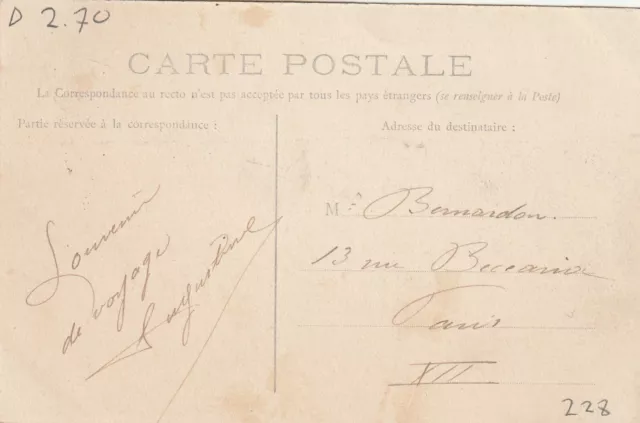 D 2.70
CARTE POSTALE
La Correspondance au recto n'est pas acceptée par tous les pays étrangers (se renseigner à la Poste)
Partie réservée à la correspondance :
Souvenir
de voyage
Augustine
Adresse du destinataire :
M Bernardon.
13 rue Beccaria
Paris
XII
228